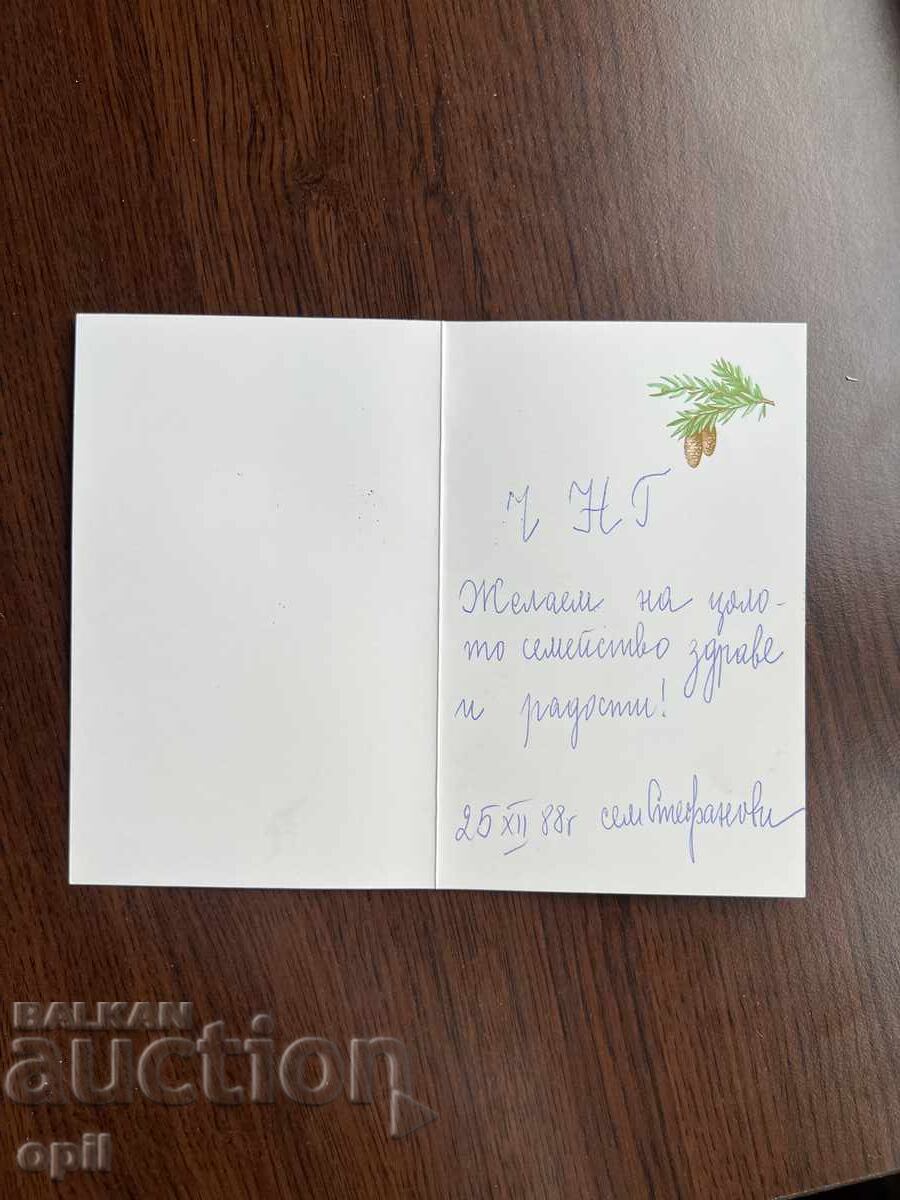 Ч НГ
Желаем на цяло-
то семейство здраве
и радости!
25 XII 88г сем Стефанови
BALKAN
auction
opil